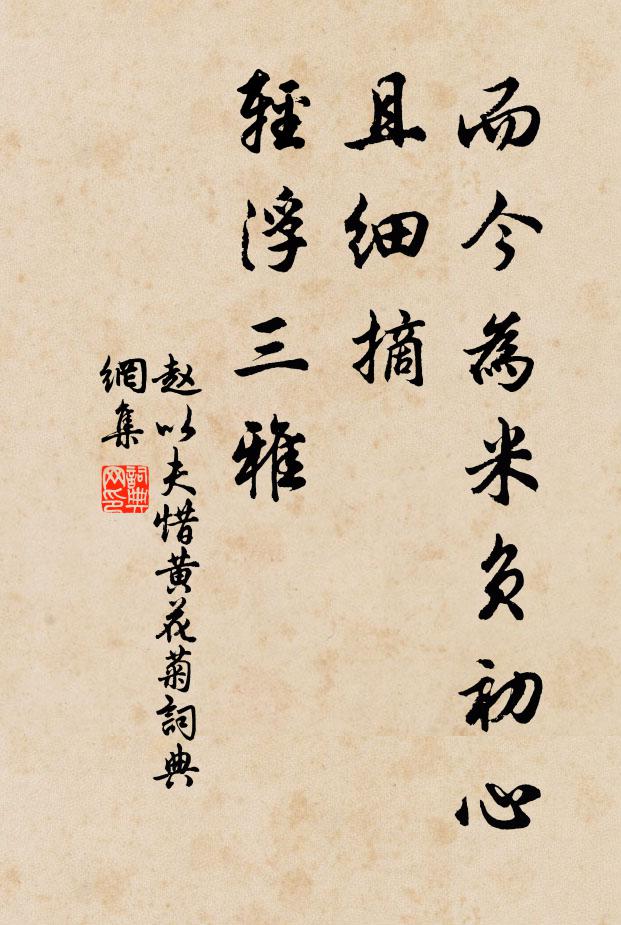 而今為米負初心
且細摘
輕浮三雅
赵以夫惜黄花菊詞典
網集
詞典
网印